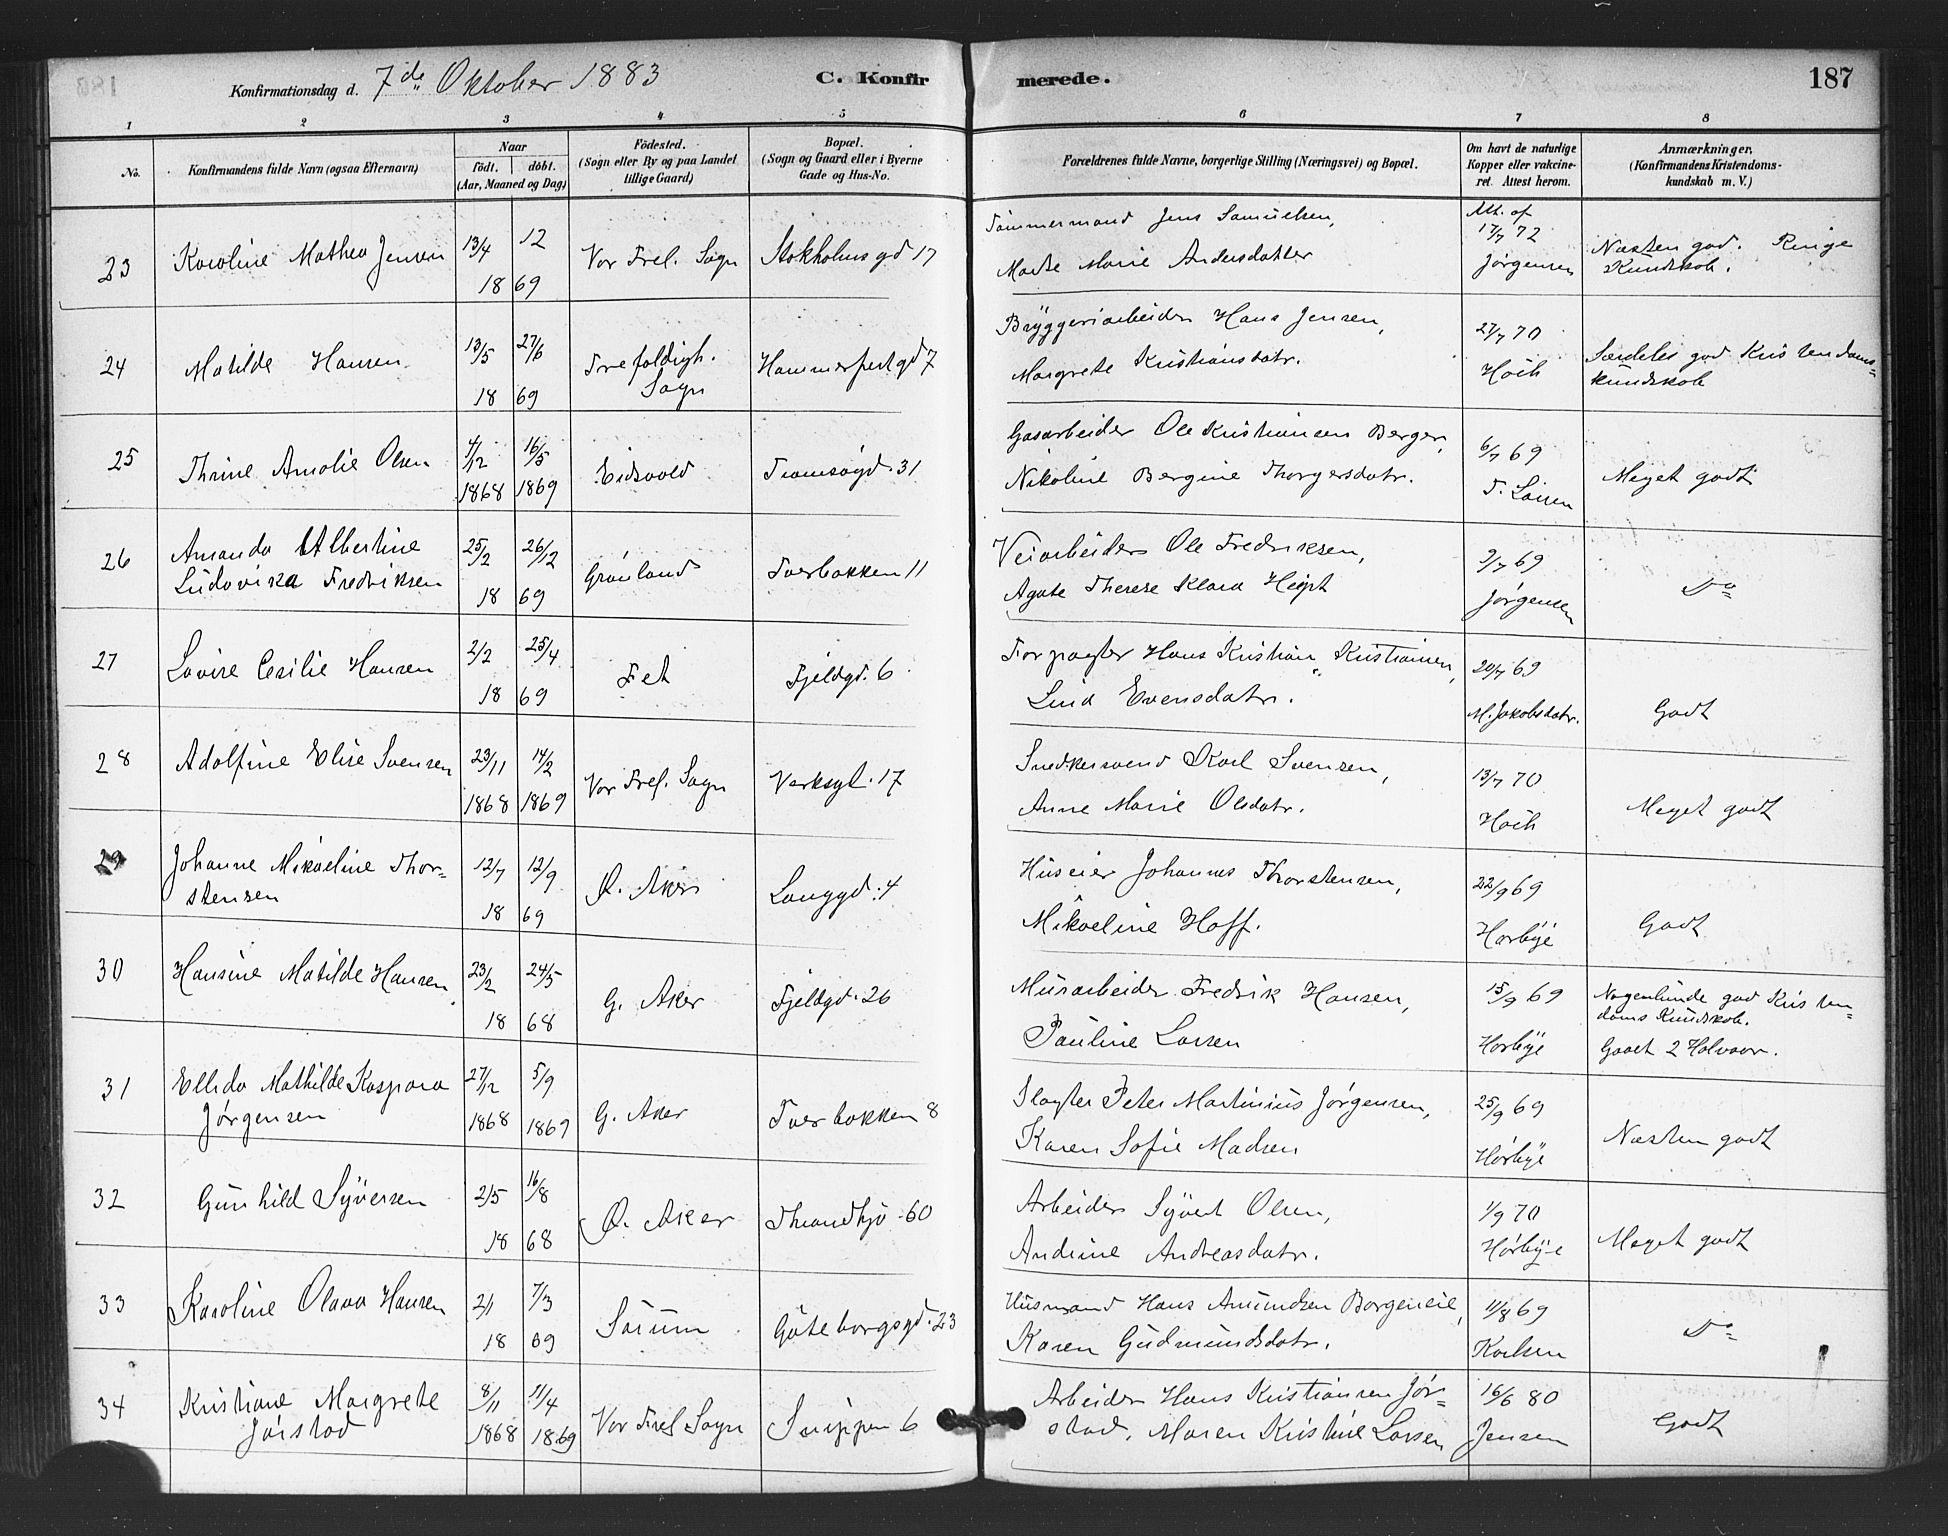 Konfirmationsdag d. 7de Oktober 1883
C. Konfirmerede.
187
1 2 3 4 5 6 7 8
No.
Konfirmandens fulde Navn (ogsaa Efternavn)
Naar
födt. döbt.
(Aar, Maaned og Dag)
Födested.
(Sogn eller By og paa Landet
tillige Gaard)
Bopæl.
(Sogn og Gaard eller i Byerne
Gade og Hus-No.
Forældrenes fulde Navne, borgerlige Stilling (Næringsvei) og Bopæl.
Om havt de naturlige
Kopper eller vakcine-
ret. Attest herom.
Anmærkninger,
(Konfirmandens Kristendoms-
kundskab m. V.)
23 Karoline Mathea Jensen 13/4 12 1869 Vor Frel. Sogn Stokholmsgd 17
Tømmermand Jens Samuelsen,
Marte Marie Andersdatter
Att. af
17/7 72
Jørgensen
Næsten god. Ringe
Kundskab.
24 Matilde Hansen 13/5 27/6 1869 Trefoldigh. Sogn Hammerfestgd 7
Bryggeriarbeider Hans Jensen,
Margrete Kristiansdatr.
27/7 70
Höih
Særdeles god Kristendoms=
kundskab
25 Thrine Amalie Olsen 4/12 1868 16/5 1869 Eidsvold Tromsøgd. 31
Gasarbeider Ole Kristiansen Berger,
Nikoline Bergine Thorgersdatr.
6/7 69
T. Larsen
Meget godt
26 Amanda Albertine
Ludovika Fredriksen 25/2 26/12 1869 Grønland Tverbakken 11
Veiarbeider Ole Fredriksen,
Agate Therese Klara
9/7 69
Jørgensen
Do
27 Lovise Cesilie Hansen 2/2 25/4 1869 Fet Fjeldgd. 6
Forpagter Hans Kristian Kristiansen,
Lina Evensdatr.
20/7 69
M. Jakobsdatr.
Godt
28 Adolfine Elise Svensen 23/11 1868 14/2 1869 Vor Frel. Sogn Verksgt. 17
Snedkersvend Karl Svensen,
Anne Marie Olsdatr.
13/7 70
Höih
Meget godt
29 Johanne Mikaeline Thor=
stensen 12/7 12/9 1869 Ø. Aker Langgd. 4
Huseier Johannes Thorstensen,
Mikaeline Hoff.
22/9 69
Hørbye
Godt
30 Hansine Matilde Hansen 23/2 24/5 1868 G. Aker Fjeldgd. 26
Murarbeider Fredrik Hansen,
Pauline Larsen
15/9 69
Hørbye
Nogenlunde god Kristen=
doms Kundskab.
Gaaet 2 Halvaar.
31 Ellida Mathilde Kaspara
Jørgensen 27/12 1868 5/9 1869 G. Aker Tverbakken 8
Slagter Peter Martinius Jørgensen,
Karen Sofie Madsen
25/9 69
Hørbye
Næsten godt
32 Gunhild Syversen 2/5 16/8 1868 Ø. Aker Throndhjv. 60
Arbeider Syvert Olsen,
Andrine Andreasdatr.
1/9 70
Hørbye
Meget godt
33 Karoline Olava Hansen 2/1 7/3 1869 Sørum Göteborgsgd. 23
Husmand Hans Amundsen Borgeneie,
Karen Gudmundsdatr.
11/8 69
Karlsen
Do
34 Kristiane Margrete
Jørstad 8/11 1868 11/4 1869 Vor Frel Sogn Snippen 6
Arbeider Hans Kristiansen Jør=
stad, Maren Kristine Larsen
16/6 80
Jensen
Godt